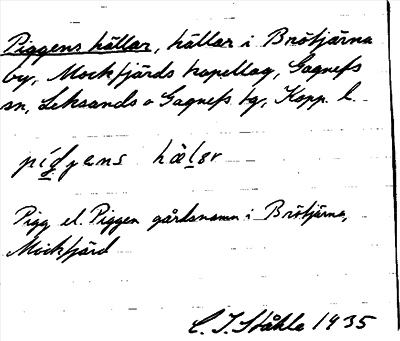 Piggens hällar, hällar i Brötjärna
by, Mockfjärds kapellag, Gagnefs
sn, Leksands o Gagnefs tg, Kopp. l.
piggens hälar
Pigg el. Piggen gårdsnamn i Brötjärna,
Mockfjärd
C. I. Ståhle 1935